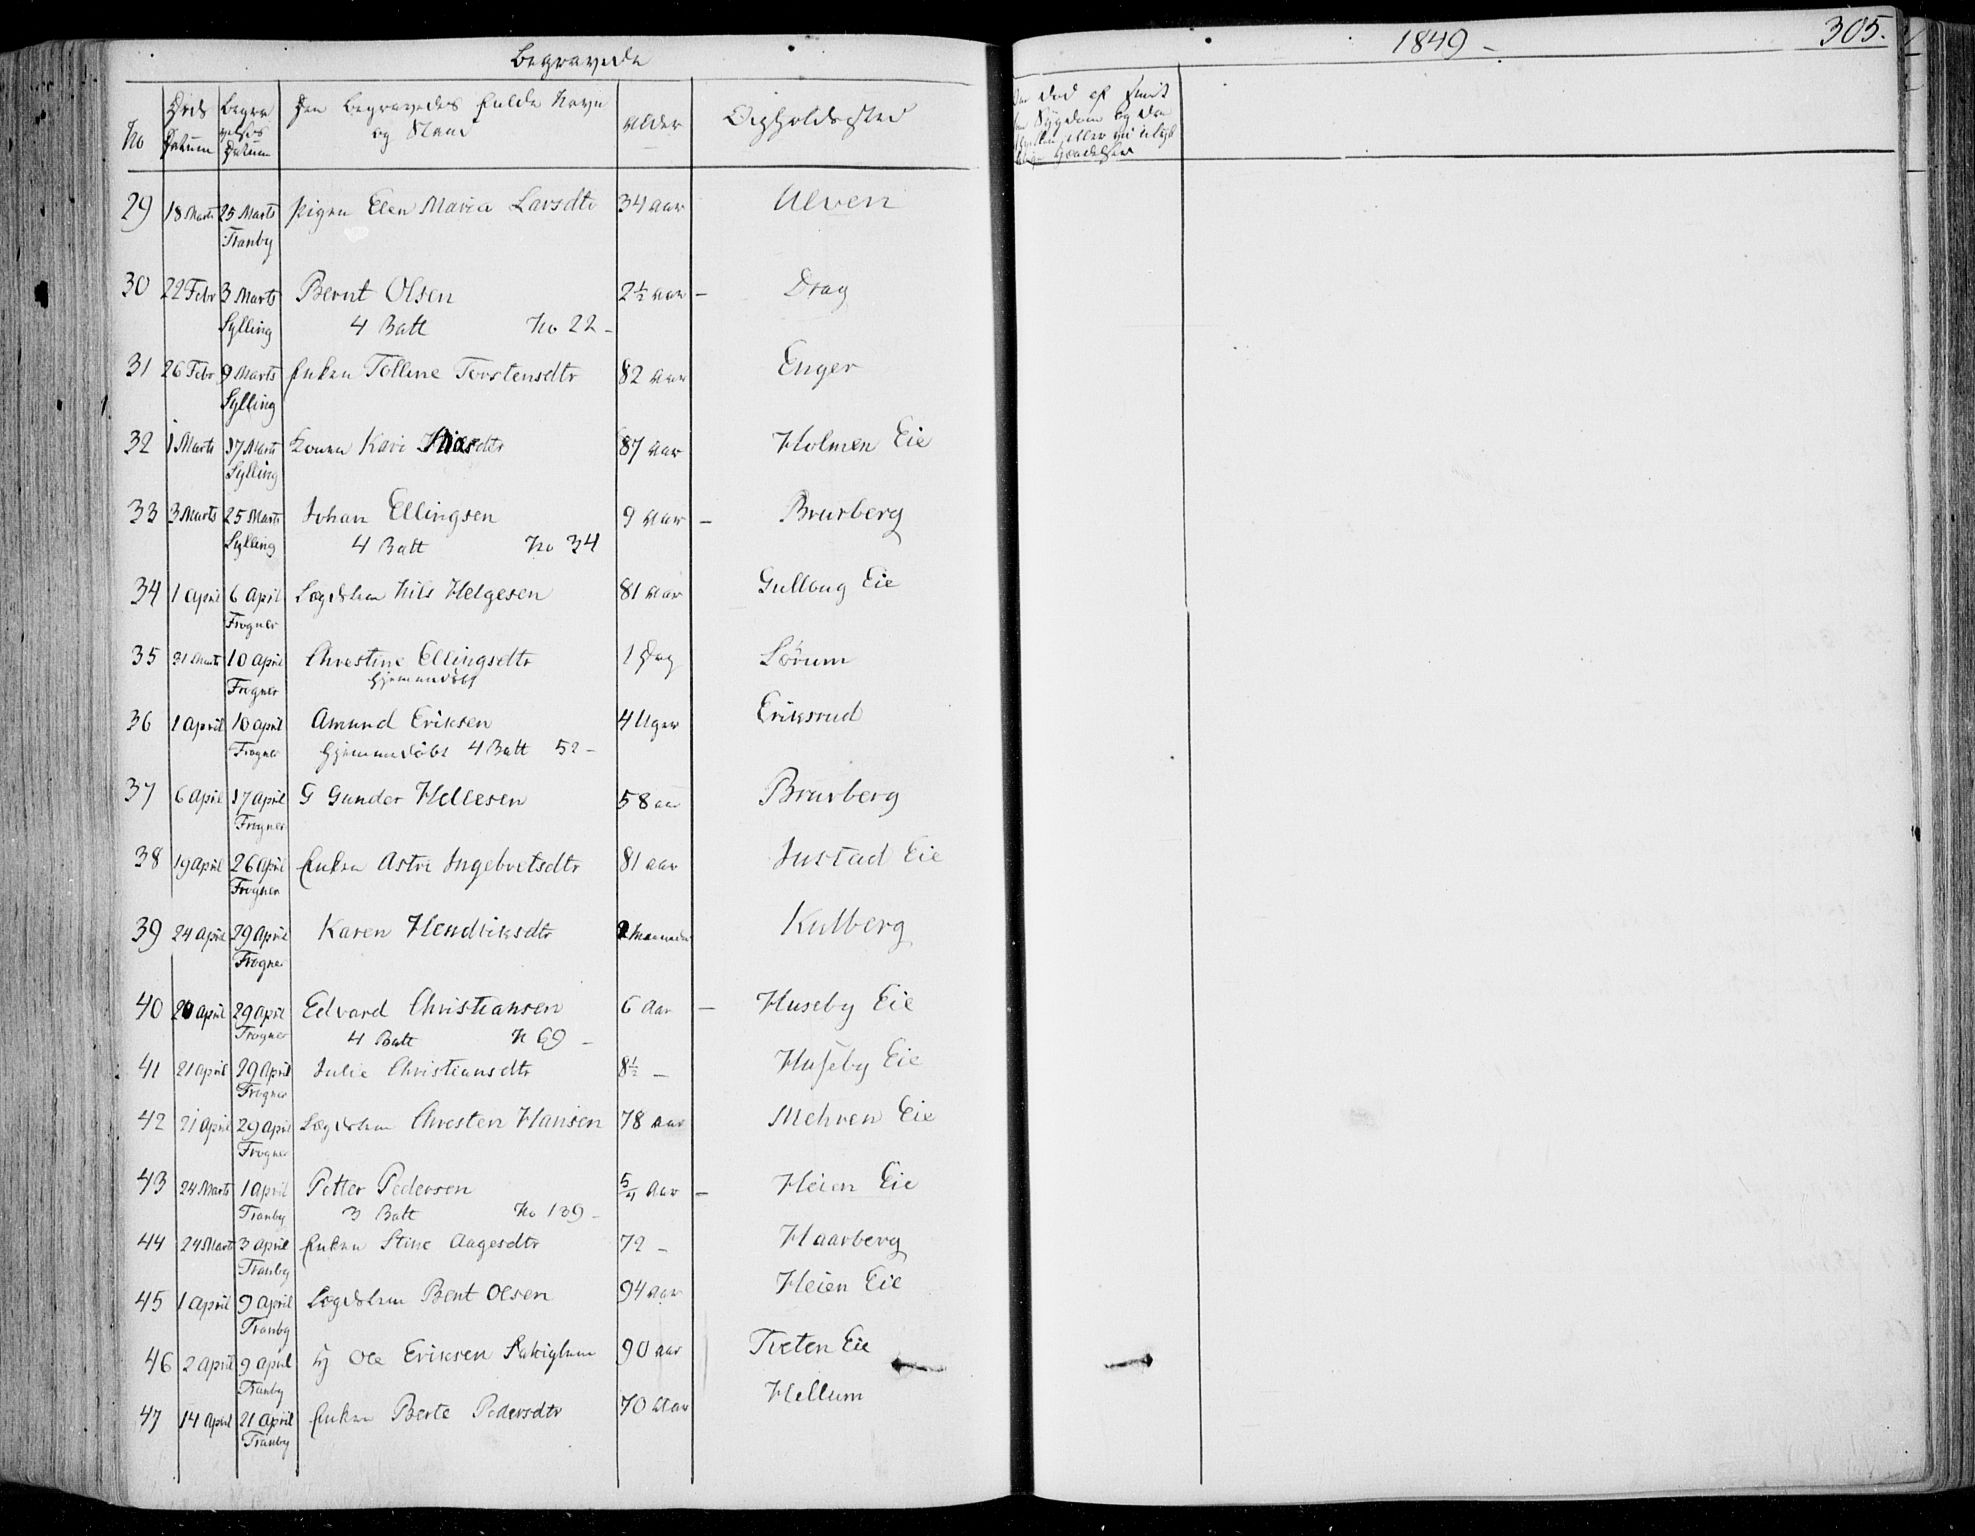 Begravede
1849 -
305.
No
Døds Datum
Begravelses Datum
Den Begravedes fulde Navn og Stand
Alder
Opholdssted
29 18 Marts 25 Marts Pigen Elen Maria Larsdtr 34 Aar Ulven
Tranby
30 22 Febr 3 Marts Bernt Olsen 2½ Aar – Drag
Sylling 4 Batt No 22 –
31 26 Febr 9 Marts Enken Tolline Torstensdtr 82 Aar Enger
Sylling
32 1 Marts 17 Marts Konen Kari 87 Aar Holmen Eie
Sylling
33 3 Marts 25 Marts Johan Ellingsen 9 Aar – Brurberg
Sylling 4 Batt No 34
34 1 April 6 April Lægdslem Nils Helgesen 81 Aar Gulloug Eie
Frogner
35 31 Marts 10 April Christine Ellingsdtr 1 Dag Sørum
Frogner hjemmedøbt
36 1 April 10 april Amund Eriksen 4 Uger Eriksrud
Frogner hjemmedøbt 4 Batt 52 –
37 6 April 17 April G Gunder Hellesen 58 aar Brurberg
Frogner
38 19 April 26 April Enken Astri Ingebretsdtr 81 aar Justad Eie
Frogner
39 24 April 29 April Karen Hendriksdtr 2 Maaneder Kulberg
Frogner
40 20 April 29 April Edvard Christiansen 6 Aar – Huseby Eie
Frogner 4 Batt N 69 –
41 21 April 29 April Julie Christiansdtr 8½ – Huseby Eie
Frogner
42 21 April 29 April Lægdslem Christen Hansen 78 Aar Mehren Eie
Frogner
43 24 Marts 1 April Petter Pedersen 5/4 Aar – Heien Eie
Tranby 3 Batt No 139 –
44 24 Marts 3 April Enken Stine Aagesdtr 72 – Haarberg
Tranby
45 1 April 9 April Lægdslem Bent Olsen 94 Aar Heien Eie
Tranby
46 2 April 9 April Ole Eriksen 90 Aar Tveten Eie
Tranby
47 14 April 21 April Enken Berte Pedersdtr 70 Aar Hellum
Tranby